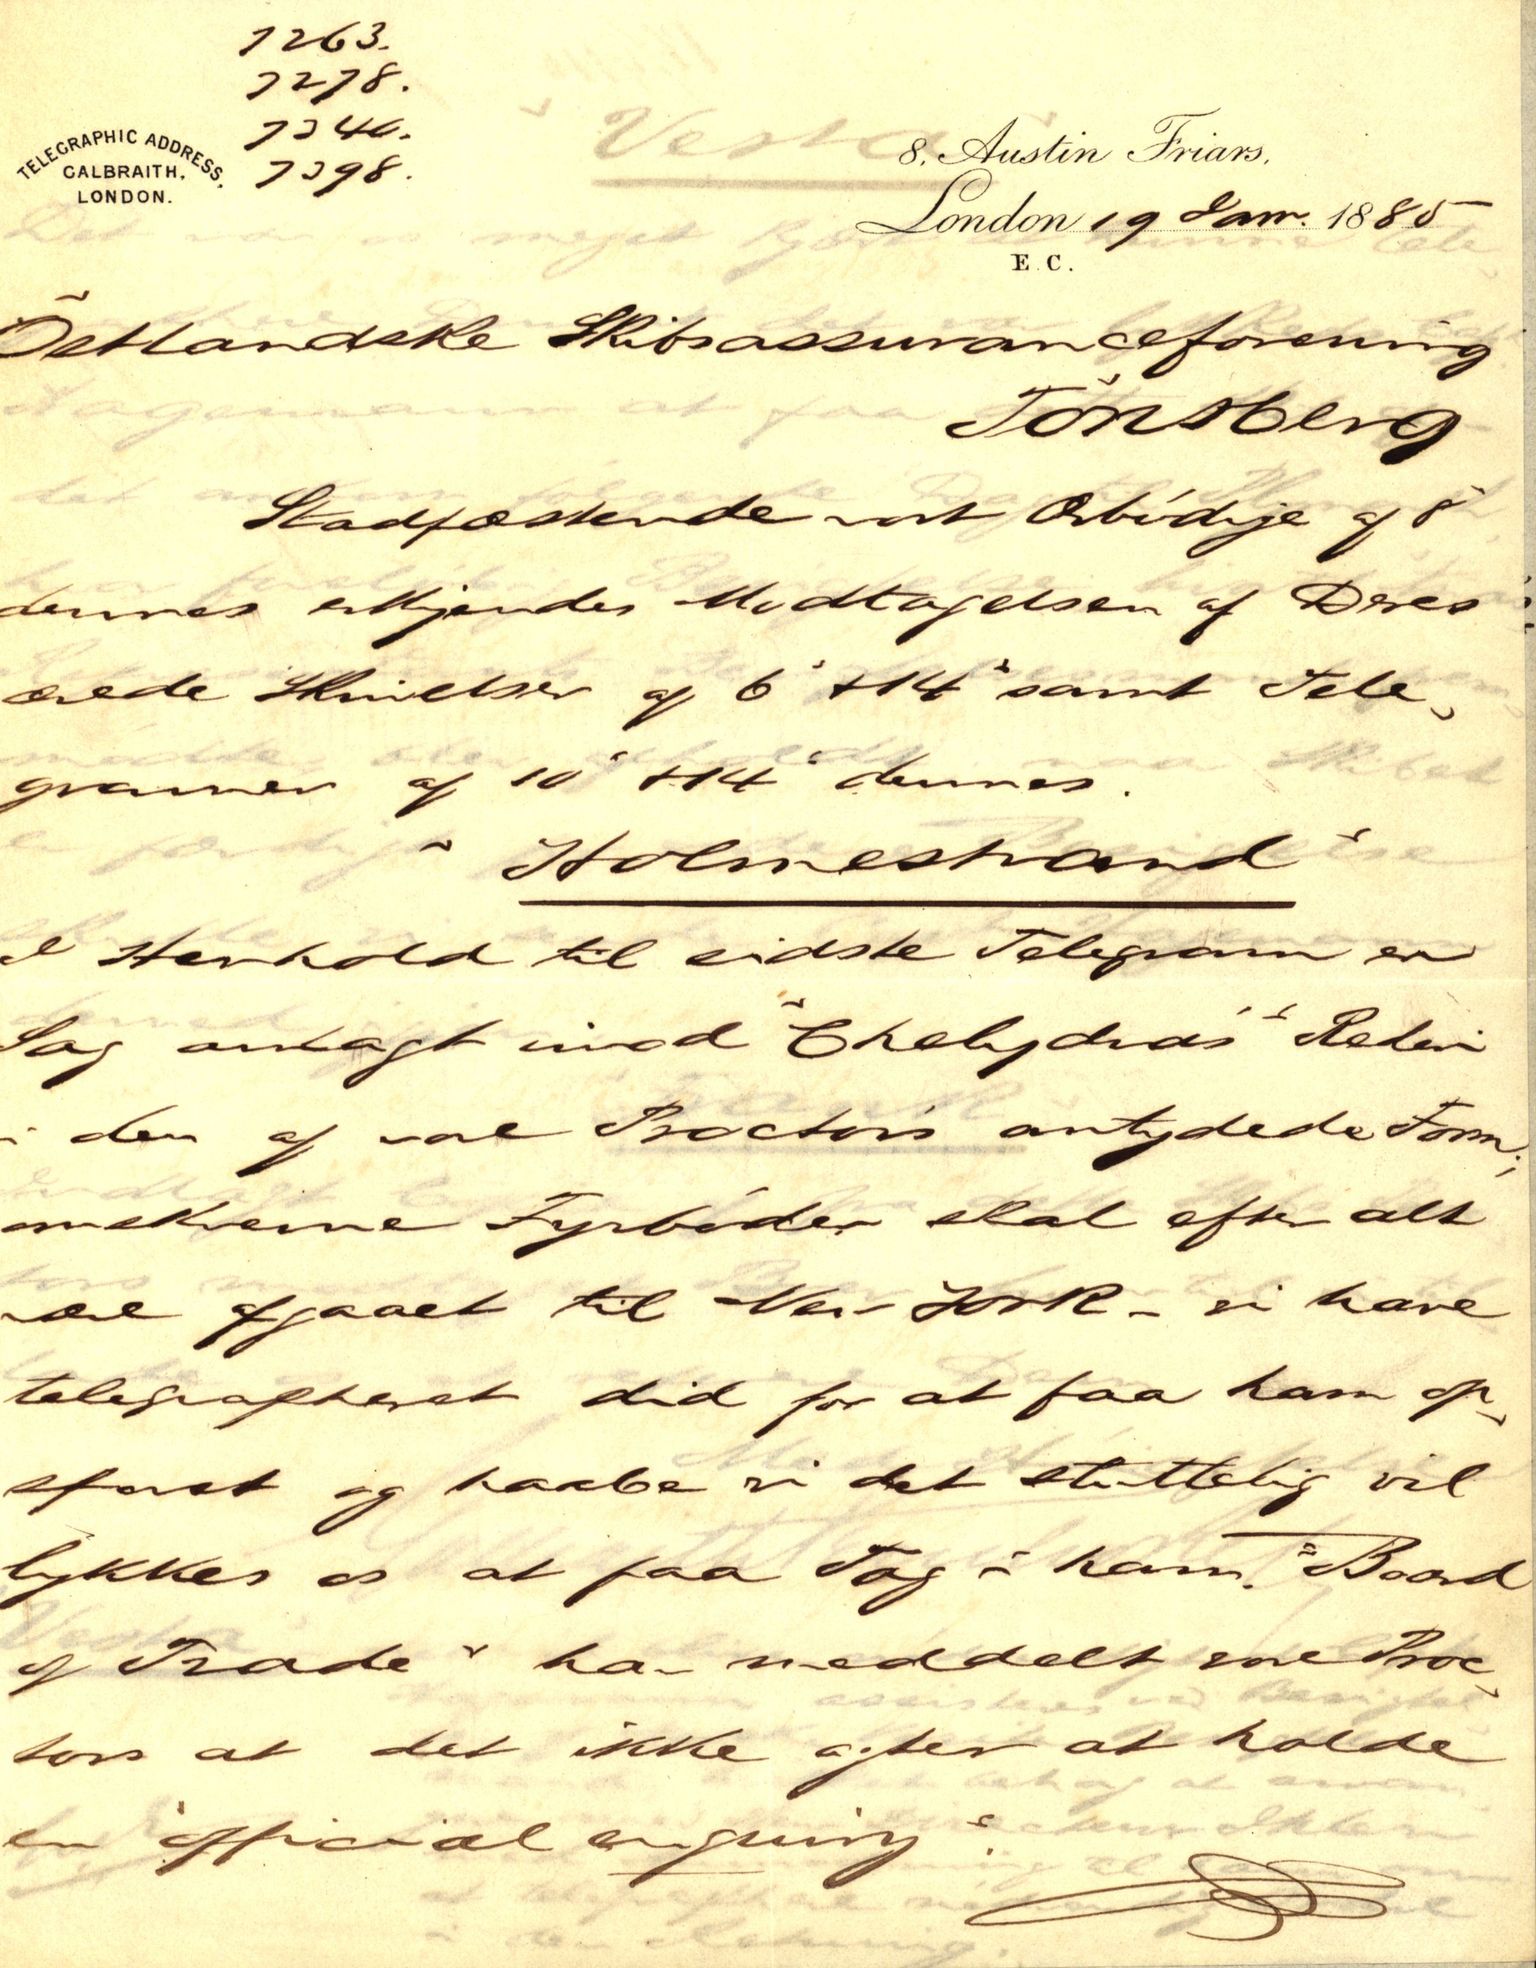 7263.
7278.
7346.
7398.
TELEGRAPHIC ADDRESS,
GALBRAITH,
LONDON.
8, Austin Friars,
London 19 Jan. 1885
E.C.
Östlandske Skibsassuranceforening
Tönsberg
Stadfæstende vort Ærbödige af 8'
dennes erkjendes Modtagelsen af Deres
ærede Skrivelser af 6' & 14' samt Tele-
gramer af 10' & 14' dennes.
"Holmestrand"
I Henhold til sidste Telegram er
Sag anlagt imod "Chelydra's" Rederi
i den af vore Proctors antydede Form;
omskrevne Fyrböder skal efter alt
være afgaaet til New York - vi have
telegrapheret did for at faa ham op-
spurt og haabe vi det sluttelig vil
lykkes os at faa Tag i ham. "Board
of Trade" har meddelt vore Proc-
tors at det ikke agter at holde
en "official enquiry".